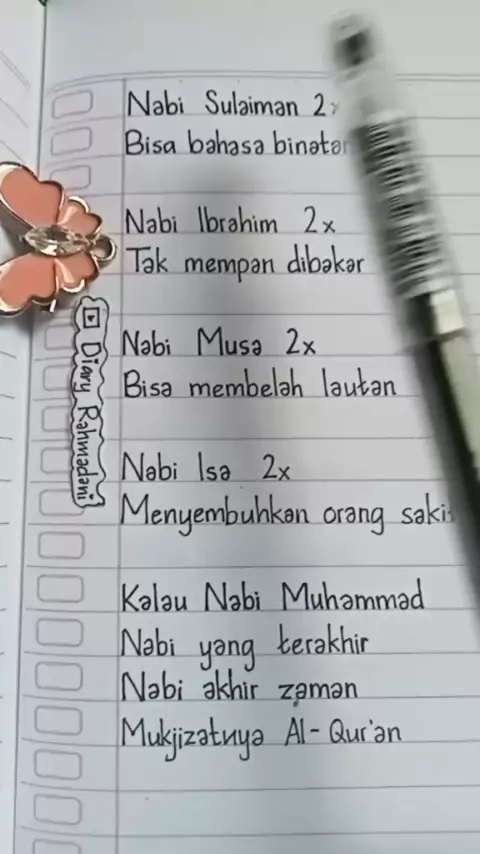 Nabi Sulaiman 2x
Bisa bahasa binata
Nabi Ibrahim 2x
Tak mempan dibakar
Nabi Musa 2x
Bisa membelah lautan
Nabi Isa 2x
Menyembuhkan orang sakit
Kalau Nabi Muhammad
Nabi yang terakhir
Nabi akhir zaman
Mukjizatnya Al-Qur'an
Diary Rahmadani